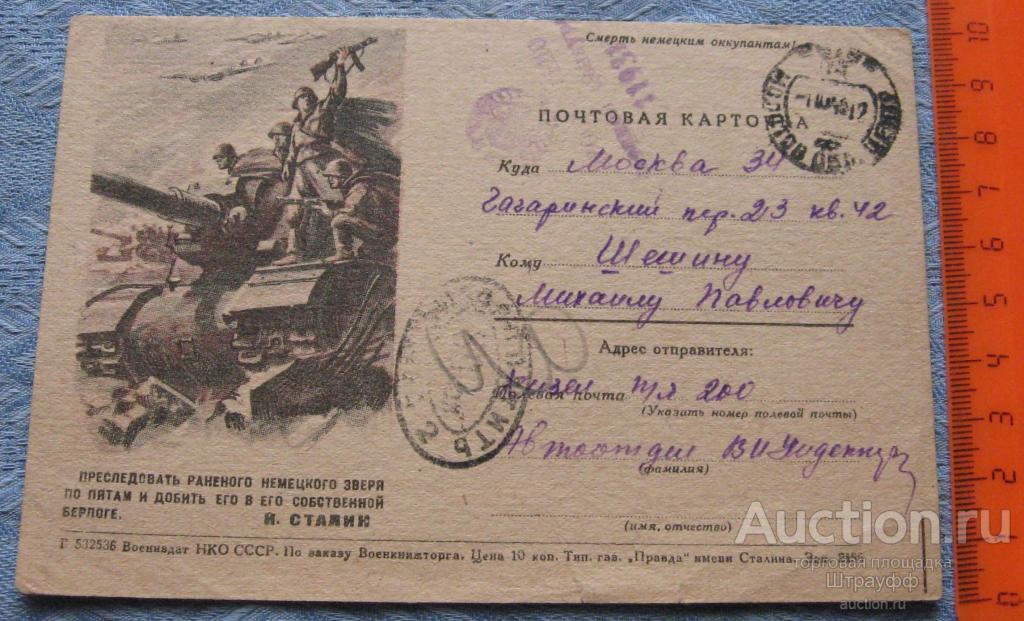 Смерть немецким оккупантам!
ПОЧТОВАЯ КАРТОЧКА
Куда Москва 34
Гагаринский пер. 23 кв. 42
Кому Шешину
Михаилу Павловичу
Адрес отправителя:
Полевая почта п/я 200
(Указать номер полевой почты)
Автоотдел
(фамилия)
(имя, отчество)
ПРЕСЛЕДОВАТЬ РАНЕНОГО НЕМЕЦКОГО ЗВЕРЯ
ПО ПЯТАМ И ДОБИТЬ ЕГО В ЕГО СОБСТВЕННОЙ
БЕРЛОГЕ.
И. СТАЛИН
Г 532536 Воениздат НКО СССР. По заказу Военкнижторга. Цена 10 коп. Тип. газ. „Правда" имени Сталина. Зак.
Auction.ru
торговая площадка
Штрауфф
auction.ru
10
9
8
7
6
5
4
3
2
1
0